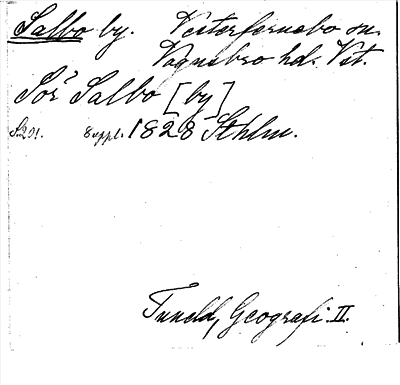 Salbo by. Vesterfernebo sn.
Vagnsbro hd. Vst.
Sör Salbo [by]
S. 291. 8 uppl. 1828 Sthlm.
Tuneld, Geografi. II.